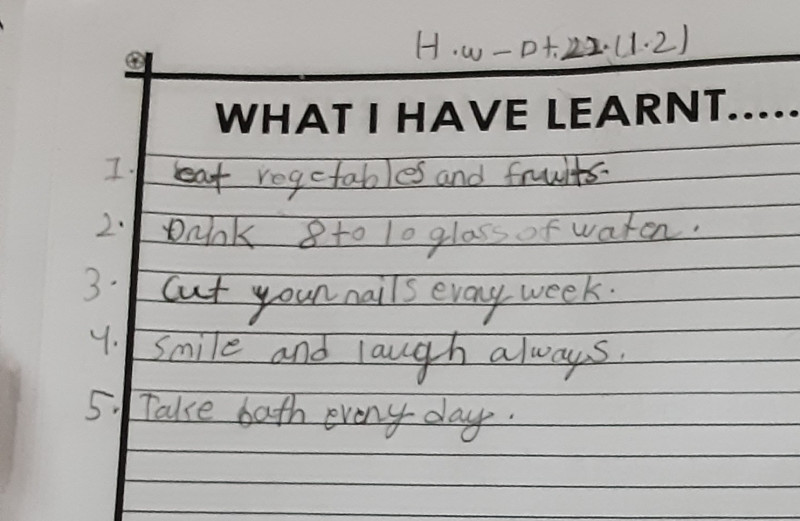 H.w - Dt. 22.(1.2)
WHAT I HAVE LEARNT.....
1. eat vegetables and fruits.
2. Drink 8 to 10 glass of water.
3. Cut your nails every week.
4. Smile and laugh always.
5. Take bath every day.